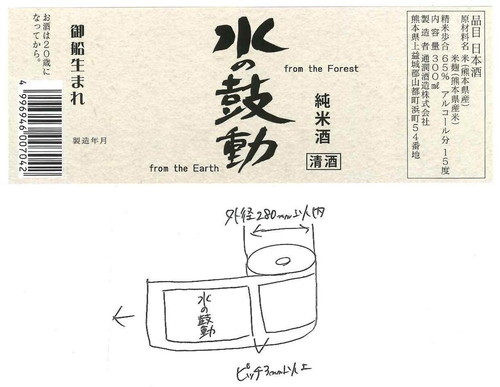 品目 日本酒
原材料名 米(熊本県産)
米麹(熊本県産米)
精米歩合 65% アルコール分 15度
内容量 300ml
製造者 通潤酒造株式会社
熊本県上益城郡山都町浜町54番地
水の鼓動
from the Forest
from the Earth
純米酒
清酒
製造年月
御船生まれ
お酒は20歳に
なってから。
4996946007042
外径280mm以内
水の鼓動
ピッチ3mm以上